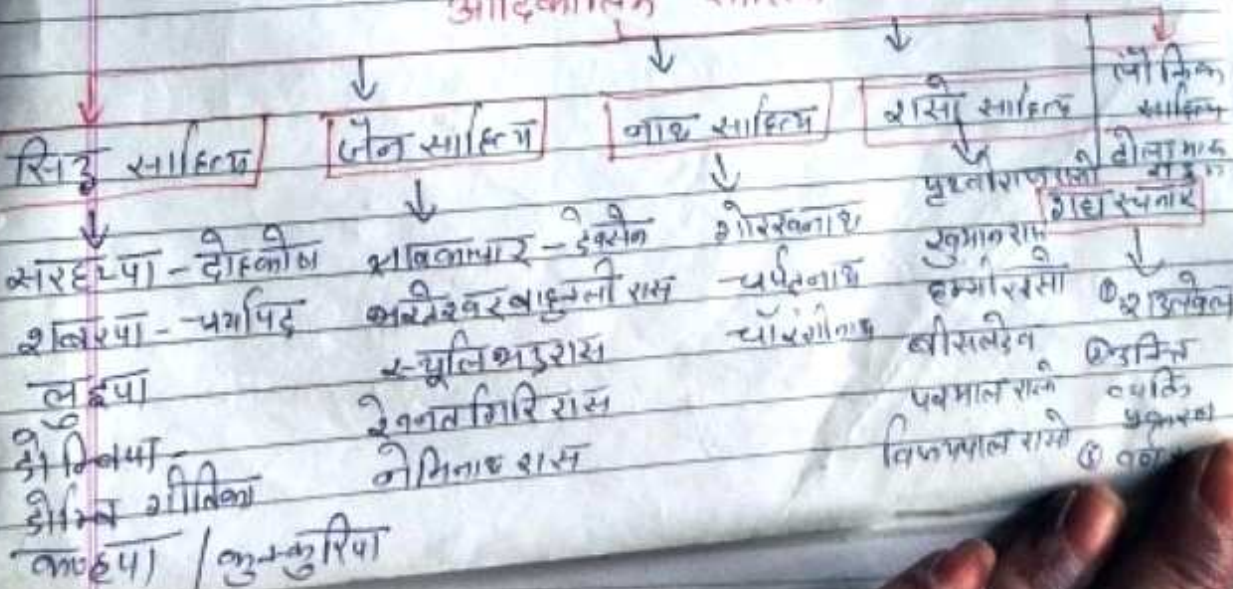 आदिकालिक
सिद्ध साहित्य
सरहप्पा - दोहकोष
शबरपा - चर्यापद
लुइपा
डोम्बिपा -
डोम्बि गीतिका
कण्हपा / कुक्कुरिपा
जैन साहित्य
श्रावकाचार - देवसेन
भरतेश्वर बाहुबली रास
स्थूलिभद्ररास
रेवन्तगिरि रास
नेमिनाथ रास
नाथ साहित्य
गोरखनाथ
चर्पटनाथ
चौरंगीनाथ
रासो साहित्य
पृथ्वीराज रासो
खुमान रासो
हम्मीर रासो
बीसलदेव
परमाल रासो
विजयपाल रासो
लौकिक
साहित्य
ढोला मारू
गद्य रचनाएं
① राउलवेल
② उक्ति
व्यक्ति
प्रकरण
③